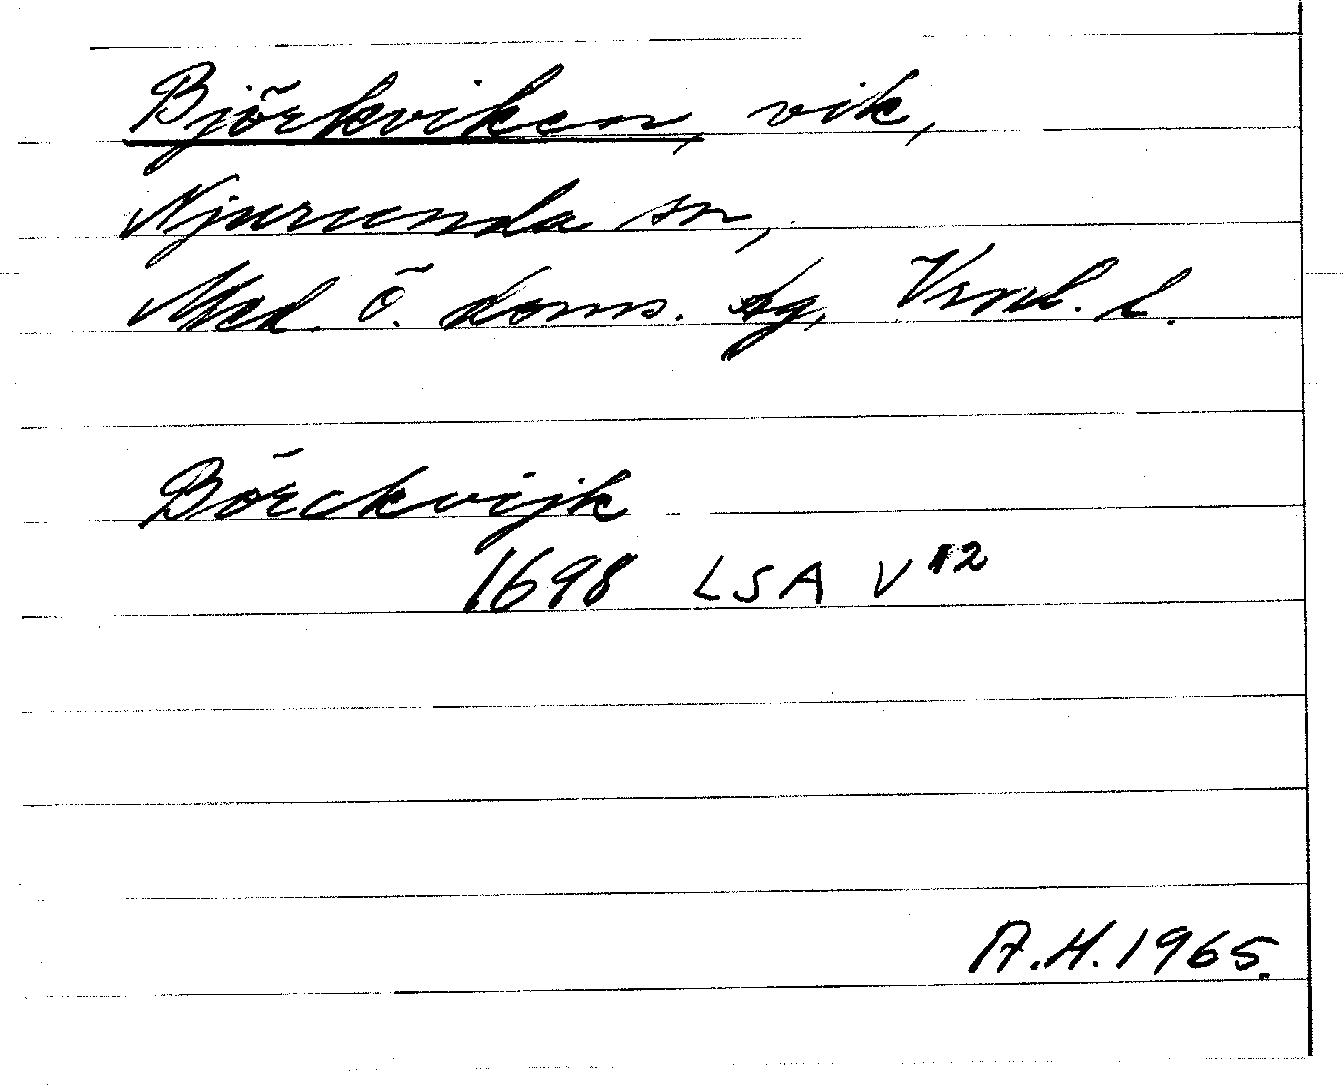 Björkviken, vik,
Njurunda sn,
Med. ö. doms. sg, Vrnl. l.
Börckvijk
1698 LSA V 12
A.H.1965.